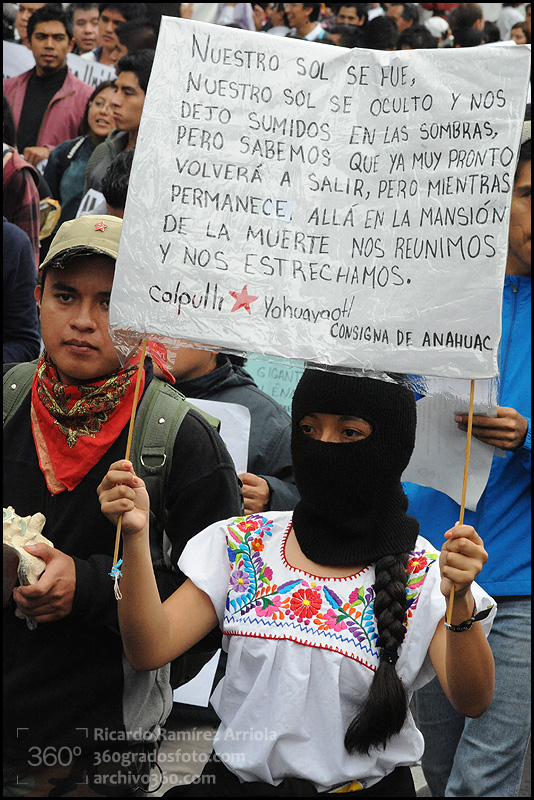 NUESTRO SOL SE FUE,
NUESTRO SOL SE OCULTO Y NOS
DEJO SUMIDOS EN LAS SOMBRAS,
PERO SABEMOS QUE YA MUY PRONTO
VOLVERÁ A SALIR, PERO MIENTRAS
PERMANECE, ALLÁ EN LA MANSIÓN
DE LA MUERTE NOS REUNIMOS
Y NOS ESTRECHAMOS.
Calpulli ★ Yohuayaotl
CONSIGNA DE ANAHUAC
GIGANTE
360º
Ricardo Ramírez Arriola
360gradosfoto.com
archivo360.com